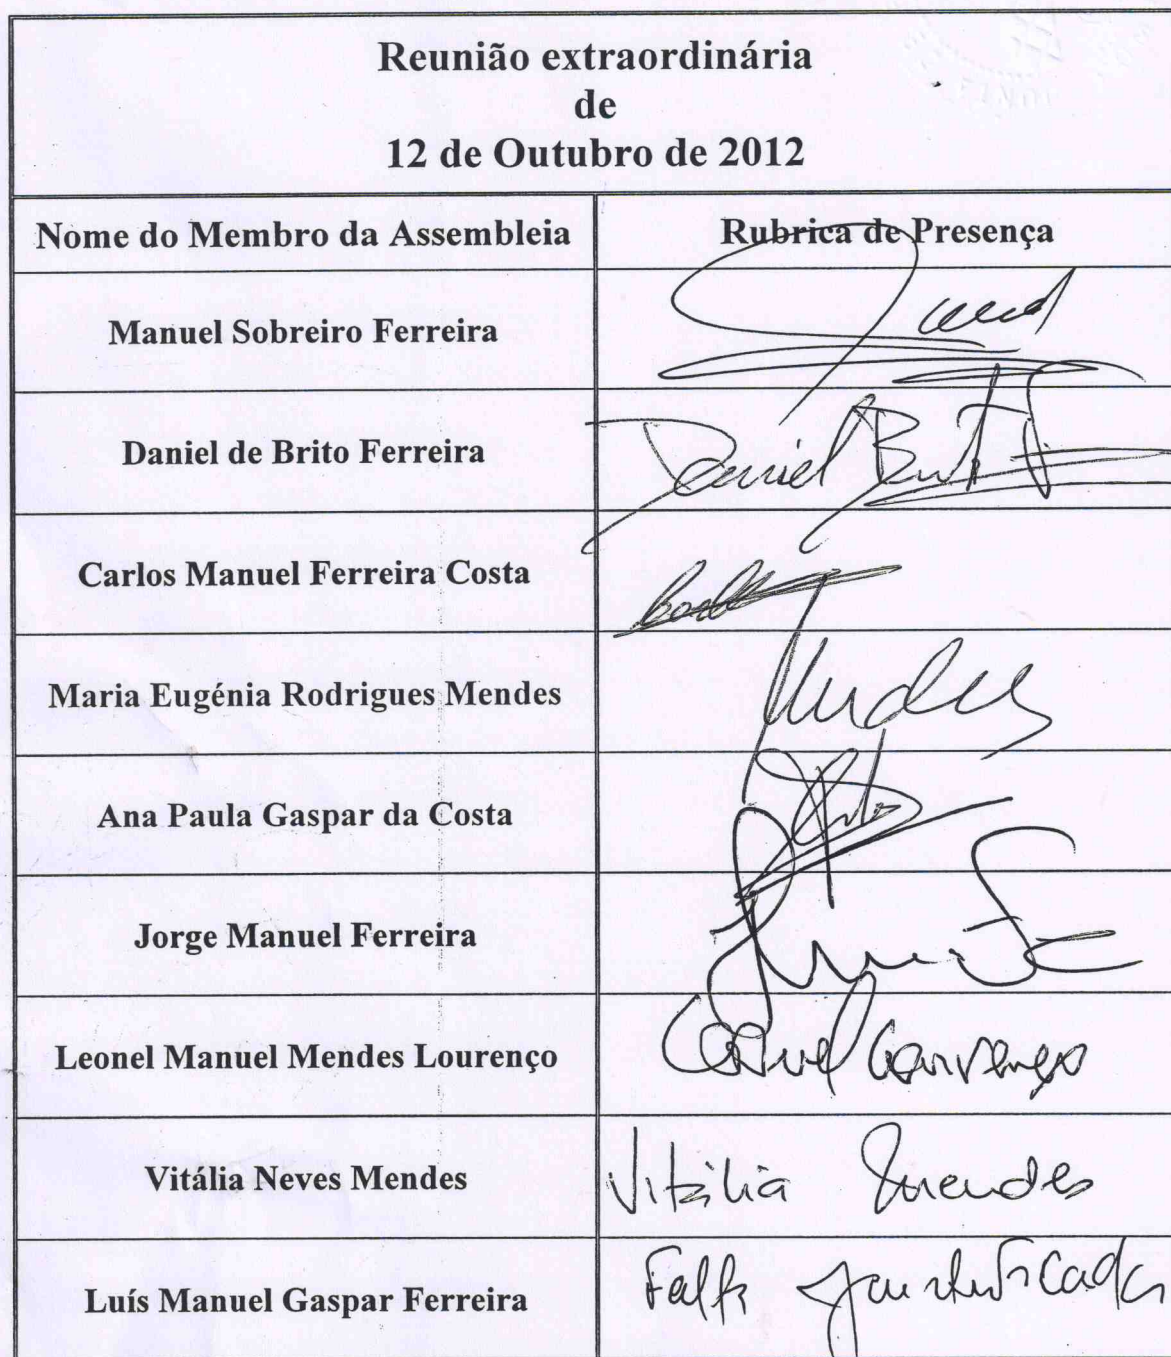 Reunião extraordinária
de
12 de Outubro de 2012
Nome do Membro da Assembleia Rubrica de Presença
Manuel Sobreiro Ferreira
Daniel de Brito Ferreira Daniel Brito
Carlos Manuel Ferreira Costa
Maria Eugénia Rodrigues Mendes Mendes
Ana Paula Gaspar da Costa
Jorge Manuel Ferreira
Leonel Manuel Mendes Lourenço Leonel Lourenço
Vitália Neves Mendes Vitália Mendes
Luís Manuel Gaspar Ferreira Falta Justificada